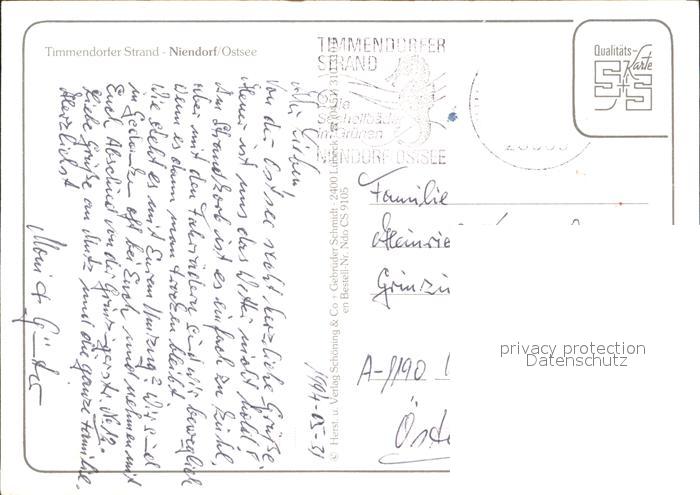 Timmendorfer Strand - Niendorf/Ostsee
TIMMENDORFER
STRAND
Die
Seeheilbäder
im Grünen
NIENDORF OSTSEE
Qualitäts-
Karte
S+S
Ihr Lieben,
Von der Ostsee recht herzliche Grüße.
Heuer ist uns das Wetter nicht hold!
Im Strandkorb ist es einfach zu kühl,
aber mit den Fahrrädern sind wir beweglich
wenn es dann man trocken bleibt.
Wie steht es mit Eurem Umzug? Wir sind
in Gedanken oft bei Euch und nehmen mit
Euch Abschied von der Grinzingerstr. No 12.
Liebe Grüße an Mutz und die ganze Familie.
Herzlichst
Moni & Günter
1994-05-31
© Herst. u. Verlag Schöning & Co + Gebrüder Schmidt · 2400 Lübeck
en Bestell-Nr. Ndo CS 9105
Familie
Heinrie
Grinzin
A-1190
Öste
privacy protection
Datenschutz